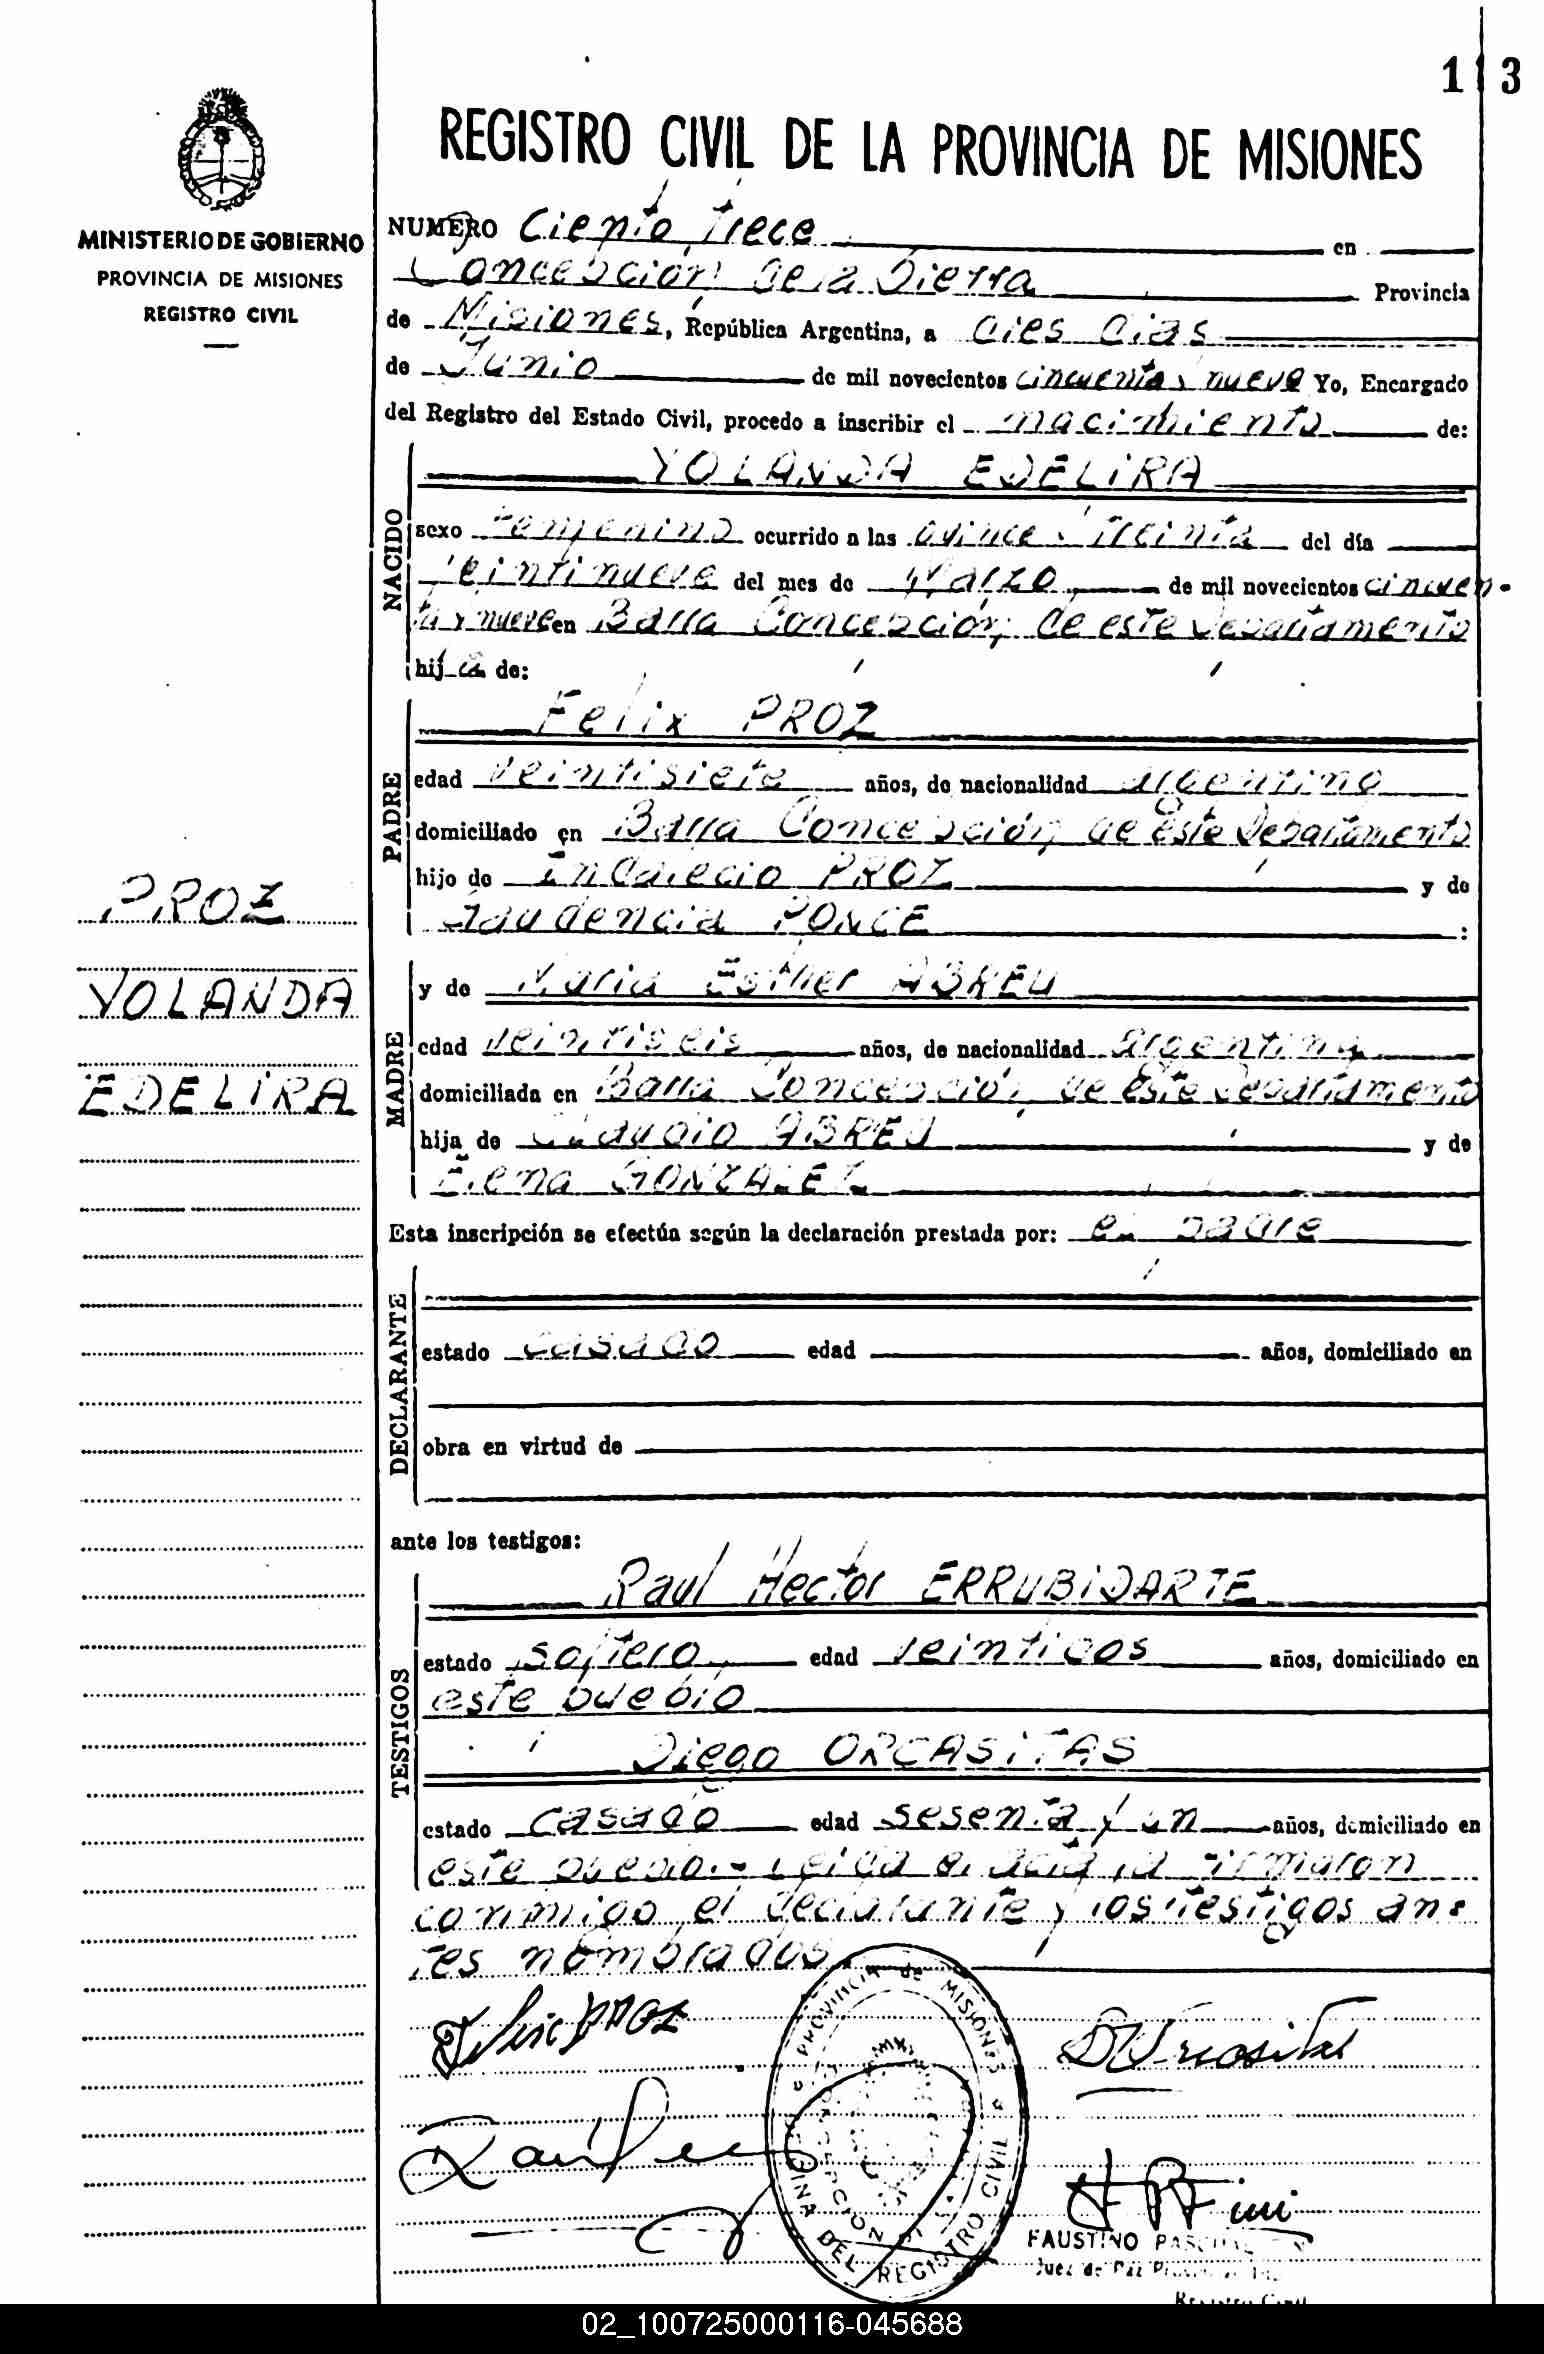 113
REGISTRO CIVIL DE LA PROVINCIA DE MISIONES
MINISTERIO DE GOBIERNO
PROVINCIA DE MISIONES
REGISTRO CIVIL
NUMERO Ciento trece en
Concepción de la Sierra Provincia
de Misiones, República Argentina, a dies dias
de Junio de mil novecientos cincuenta y nueve Yo, Encargado
del Registro del Estado Civil, procedo a inscribir el nacimiento de:
NACIDO
YOLANDA EDELIRA
sexo femenino ocurrido a las quince y treinta del día
veintinueve del mes de Marzo de mil novecientos cincuen-
ta y nueve en Barra Concepción, de este Departamento
hija de:
PADRE
Felix PROZ
edad veintisiete años, de nacionalidad argentino
domiciliado en Barra Concepción, de este Departamento
hijo de Indalecio PROZ y de
Gaudencia PONCE :
PROZ
YOLANDA
EDELIRA
MADRE
y de Maria Esther ABREU
edad veintiseis años, de nacionalidad argentina
domiciliada en Barra Concepción, de este Departamento
hija de Claudio ABREU y de
Elena GONZALEZ
Esta inscripción se efectúa según la declaración prestada por: el padre
DECLARANTE
estado casado edad años, domiciliado en
obra en virtud de
ante los testigos:
TESTIGOS
Raul Hector ERRUBIDARTE
estado soltero edad veintidos años, domiciliado en
este pueblo
Diego ORCASITAS
estado casado edad sesenta y un años, domiciliado en
este pueblo.- Leida el acta la firmaron
conmigo el declarante y los testigos an-
tes nombrados.
Felix PROZ
PROVINCIA de MISIONES
DEL REGISTRO CIVIL
FAUSTINO
Juez de Paz
Registro Civil
02_100725000116-045688